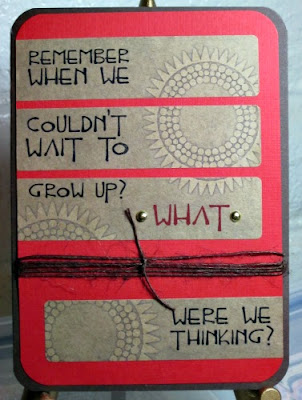 REMEMBER
WHEN WE
COULDN'T
WAIT TO
GROW UP?
WHAT
WERE WE
THINKING?